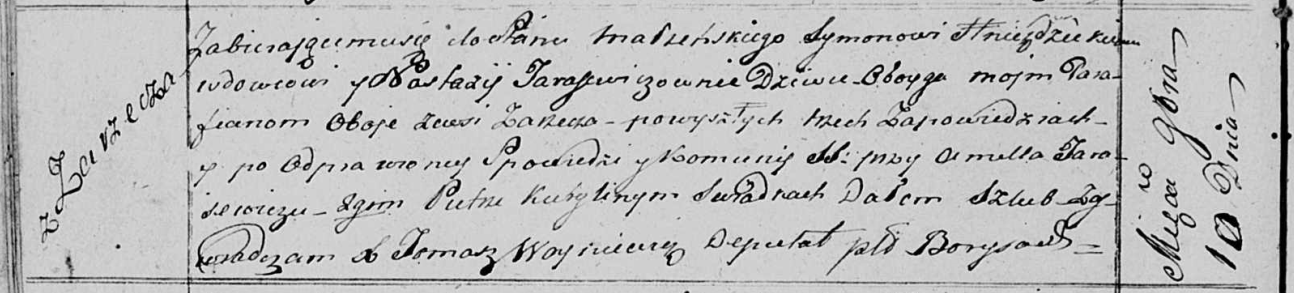 z Zarzecza
Zabierającemusię do Stanu Małżeńskiego Symonowi
wdowcowi y Nastazij Tarasewiczownie Dziewce Oboyga moim Para-
fianom Oboje zewsi Zarzecza - powyszłych trzech Zapowiedziach -
y po Odprawioney Spowiedzi y Komunij SS: przy Omella Tara-
sewiczu - Piotrze Kurylinym Swiadkach Dałem Szlub - Zy-
wiadczam X Tomasz Woyniewicz Deputat Borysow =
Mięca 9bra
10 Dnia